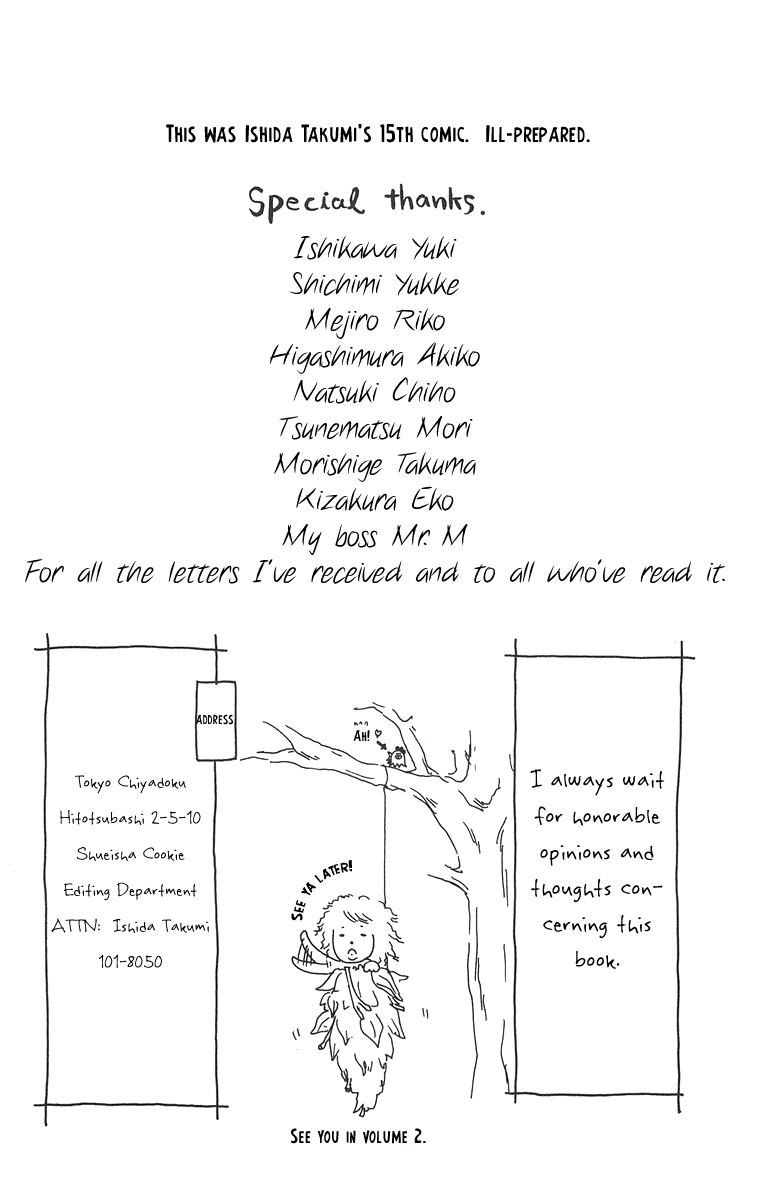 THIS WAS ISHIDA TAKUMI'S 15TH COMIC. ILL-PREPARED.
Special thanks.
Ishikawa Yuki
Shichimi Yukke
Mejiro Riko
Higashimura Akiko
Natsuki Chiho
Tsunematsu Mori
Morishige Takuma
Kizakura Eko
My boss Mr. M
For all the letters I've received and to all who've read it.
ADDRESS
Tokyo Chiyadoku
Hitotsubashi 2-5-10
Shueisha Cookie
Editing Department
ATTN: Ishida Takumi
101-8050
AH! ♡
SEE YA LATER!
I always wait
for honorable
opinions and
thoughts con-
cerning this
book.
SEE YOU IN VOLUME 2.